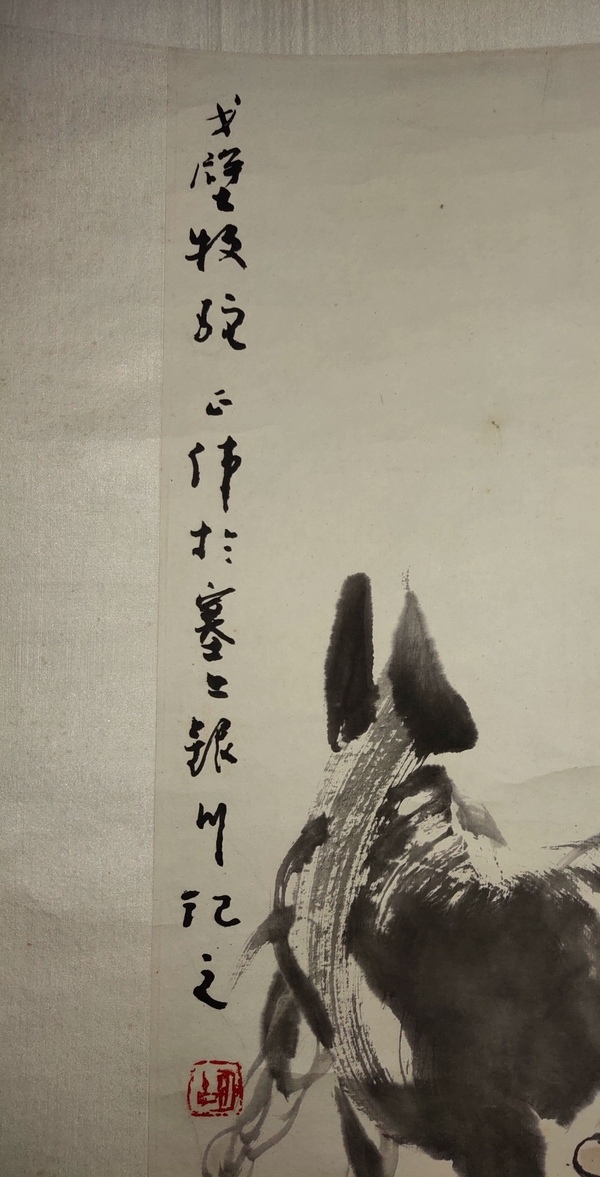 戈壁牧驼 正伟於塞上银川记之